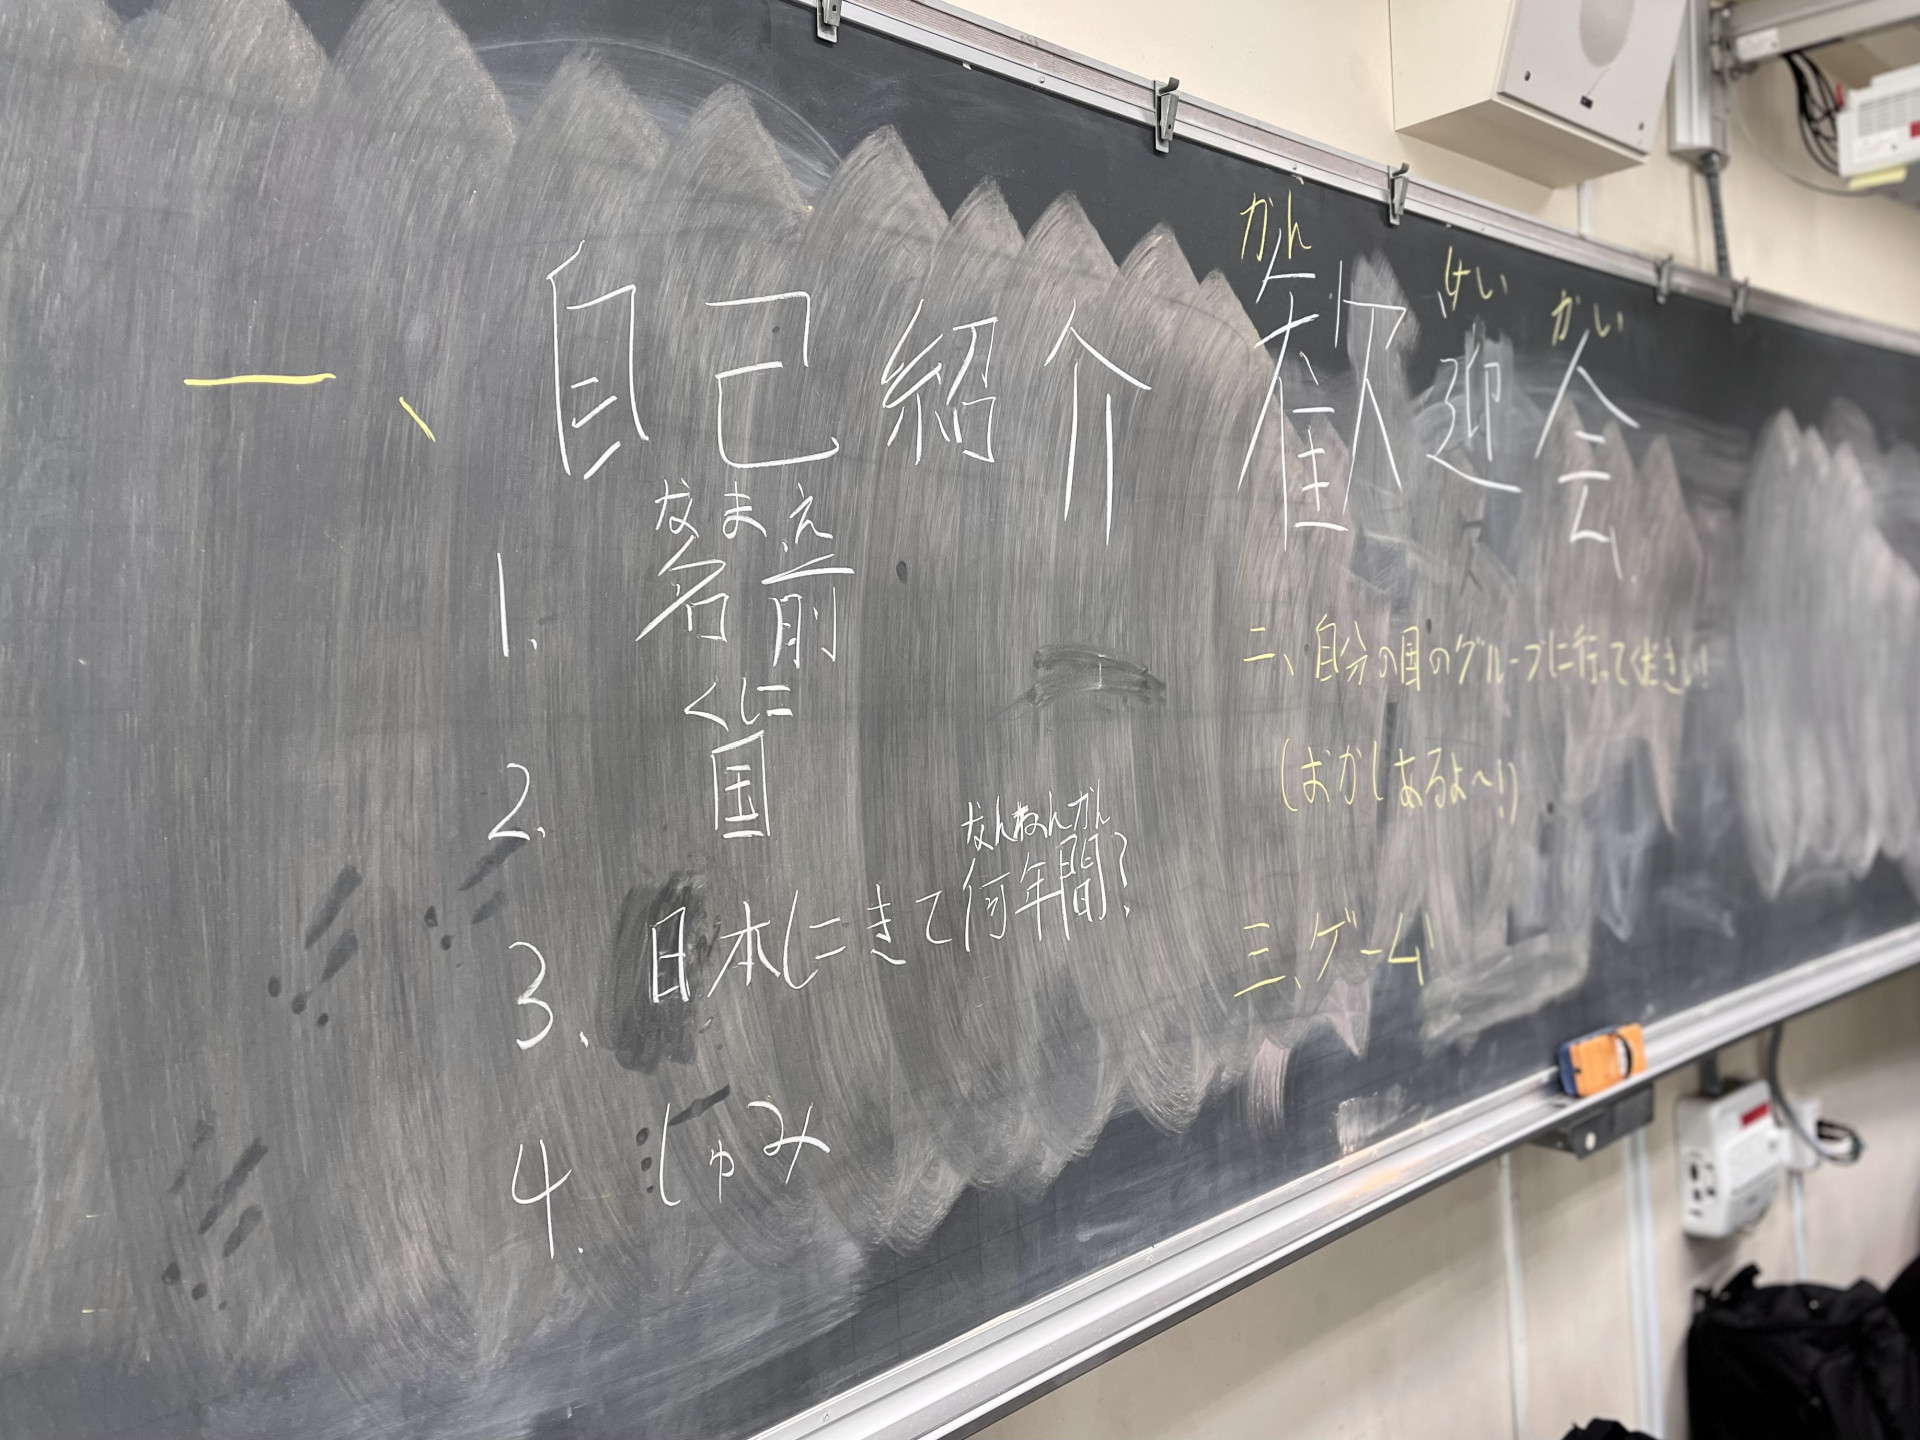 一、 自己紹介
なまえ
1. 名前
くに
2. 国
なんねんかん
3. 日本にきて何年間?
4. しゅみ
かんげいかい
歓迎会
二、自分の国のグループに行ってください!
(おかしあるよ〜!)
三、ゲーム